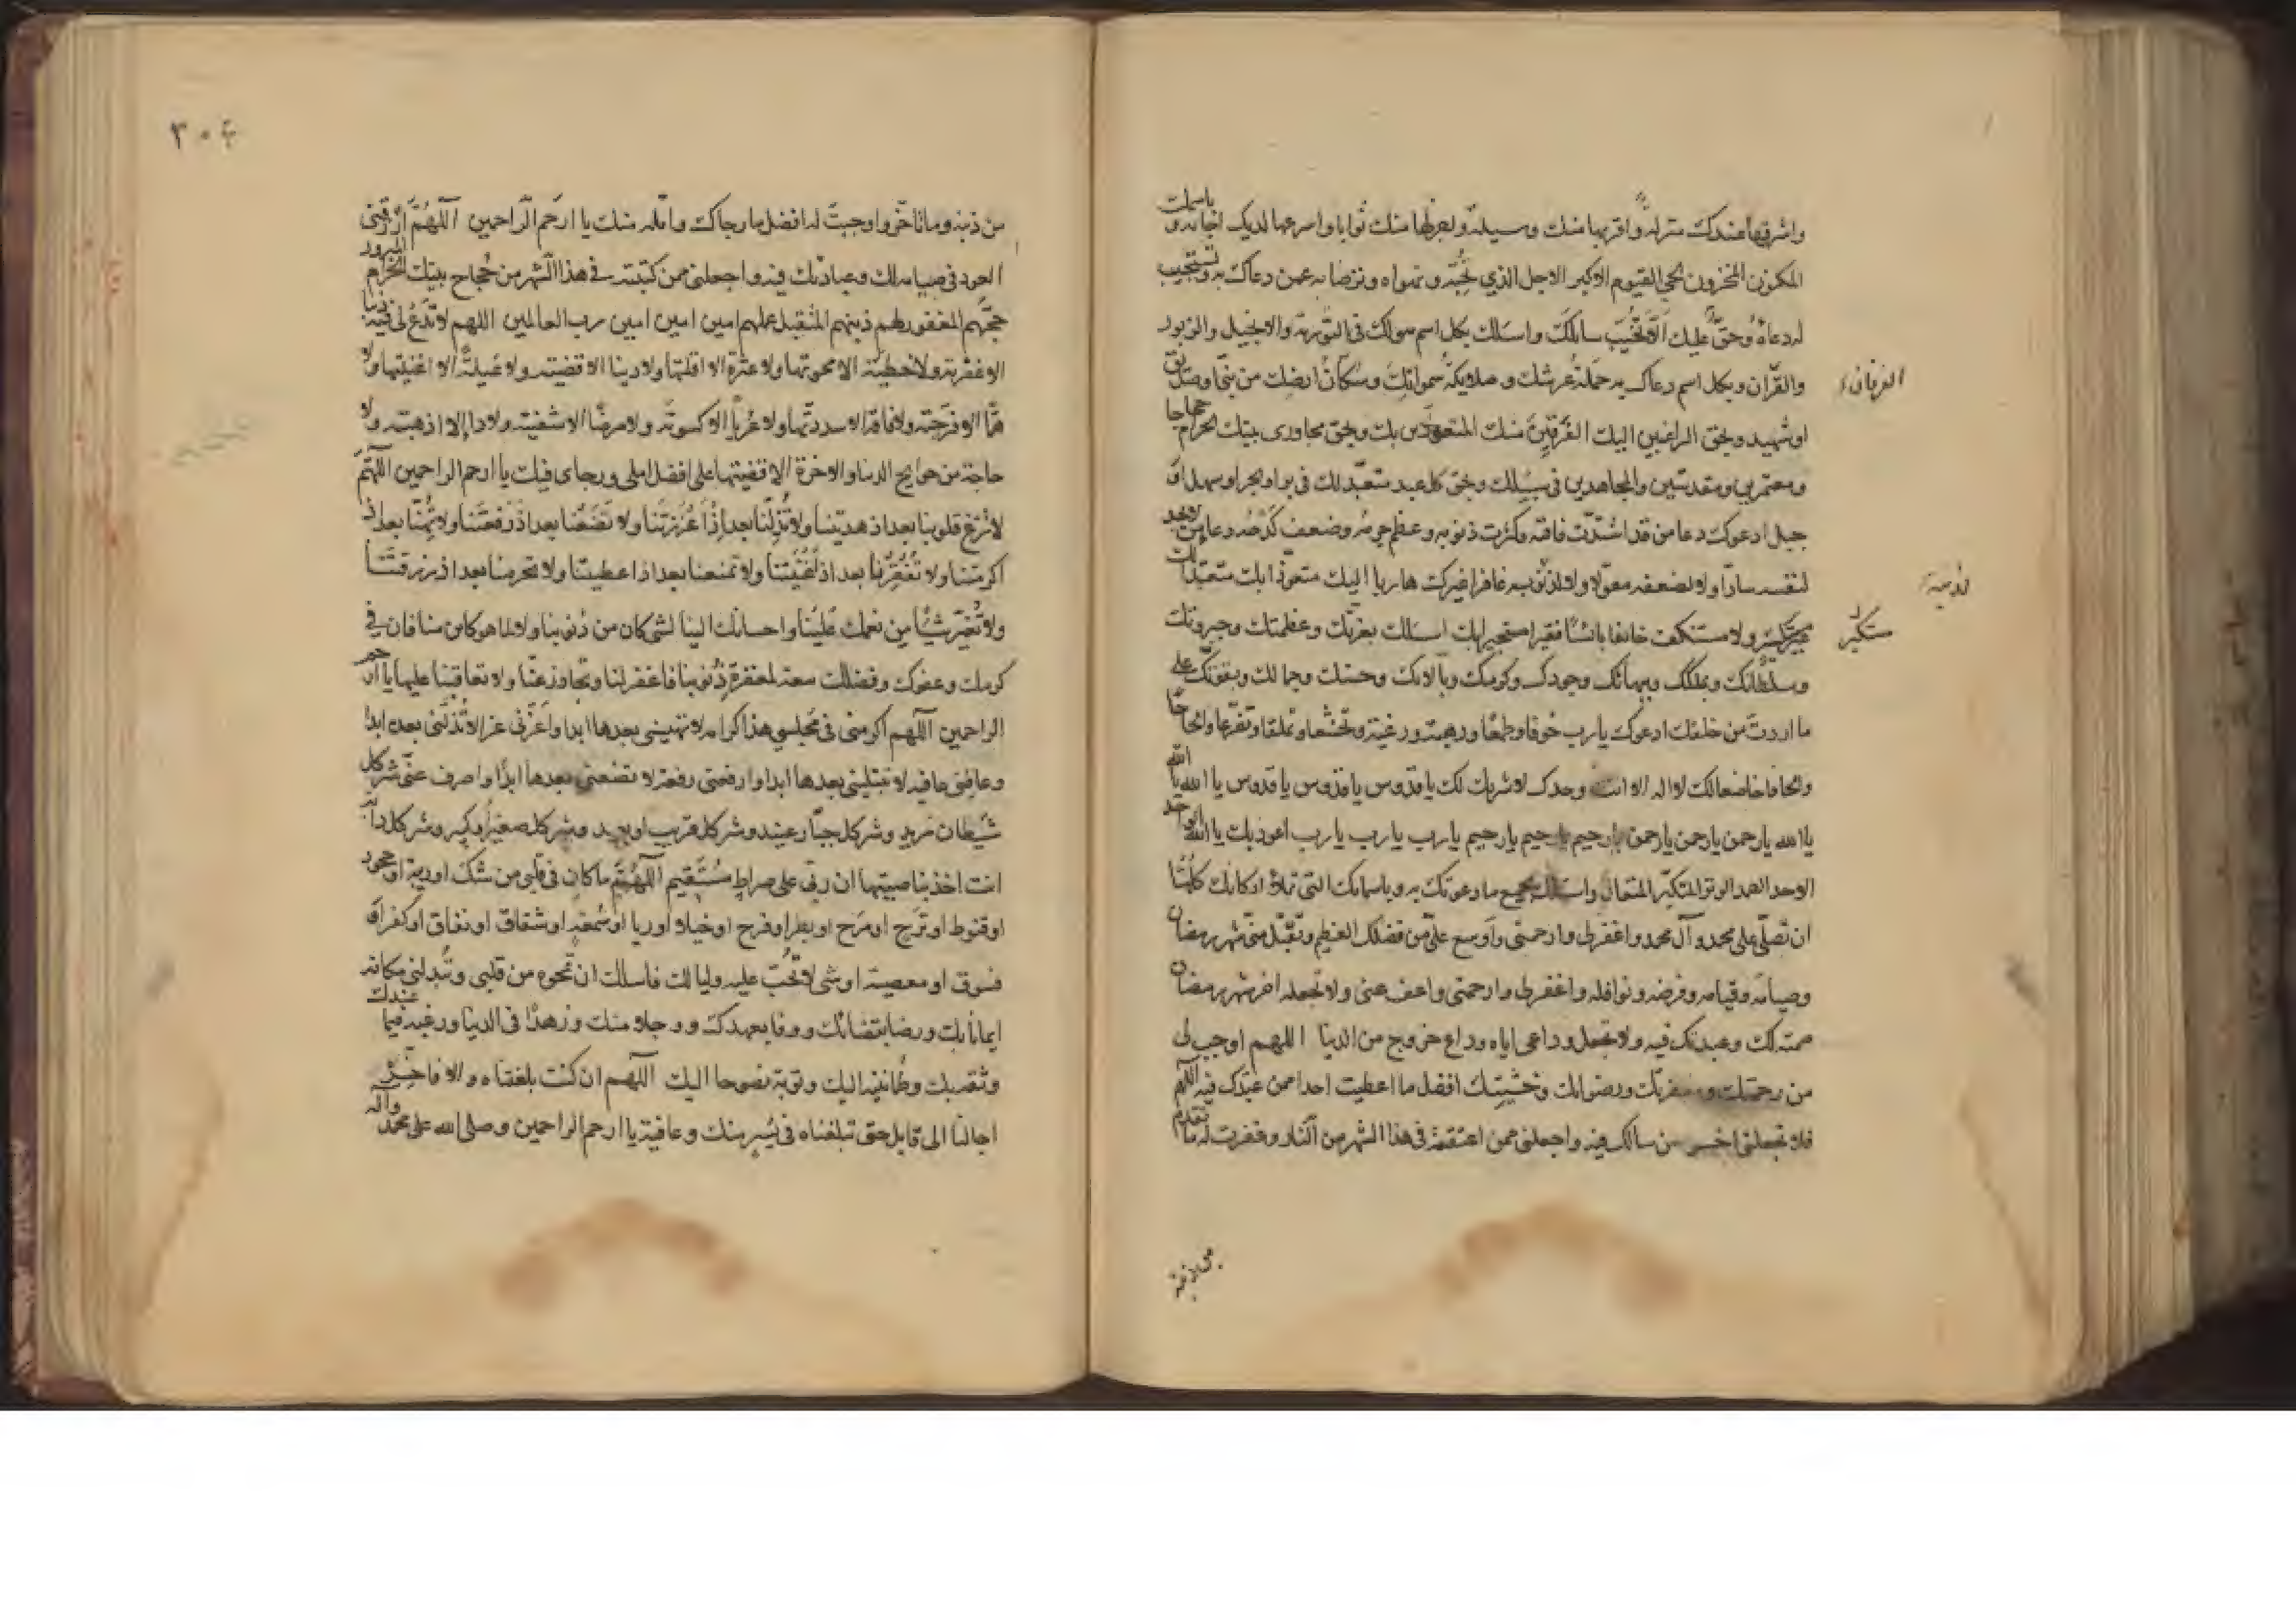 واشرفها عندك منزلة واقربها منك وسيلة واجزلها منك ثوابا واسرعها لديك اجابة و باسمك
المكنون المخزون الحي القيوم الاكبر الاجل الذي تحبه وتهواه وترضا به عمن دعاك به وتستجيب
له دعاءه وحق عليك الا تخيب سائلك واسئلك بكل اسم هو لك في التورية والانجيل والزبور
والقرآن وبكل اسم دعاك به حملة عرشك وملايكة سمواتك وسكان ارضك من نبي او صديق
الفرقان
او شهيد وبحق الراغبين اليك الفرقين منك المتعوذين بك وبحق مجاورى بيتك الحرام حجاجا
ومعتمرين ومقدسين والمجاهدين في سبيلك وبحق كل عبد متعبد لك في بر او بحر او سهل او
جبل ادعوك دعا من قد اشتدت فاقته وكثرت ذنوبه وعظم جرمه وضعف كدحه دعا من لا يجد
لنفسه سادا ولا لضعفه معولا ولا لذنبه غافرا غيرك هاربا اليك متعوذا بك متعبدا لك
لذنبه
غير مستكبر ولا مستنكف خائفا بائسا فقيرا مستجيرا بك اسئلك بعزتك وعظمتك وجبروتك
مستكبر
وسلطانك وبملكك وببهائك وجودك وكرمك وبآلائك وحسنك وجمالك وبقوتك على
ما اردت من خلقك ادعوك يارب خوفا وطمعا ورهبة ورغبة وتخشعا وتملقا وتضرعا والحاحا
والحافا خاضعا لك لا اله الا انت وحدك لا شريك لك يا قدوس يا قدوس يا قدوس يا الله يا الله
يا الله يا رحمن يا رحمن يا رحمن يا رحيم يا رحيم يا رحيم يا رب يا رب يا رب اعوذ بك يا الله الواحد
الاحد الصمد الوتر المتكبر المتعال واسئلك بجميع ما دعوتك به وباسمائك التي تملاء اركانك كلها
ان تصلي على محمد وآل محمد واغفر لى وارحمني واوسع علي من فضلك العظيم وتقبل مني شهر رمضان
وصيامه وقيامه وفرضه ونوافله واغفر لى وارحمني واعف عني ولا تجعله اخر شهر رمضان
صمته لك وعبدتك فيه ولا تجعل وداعى اياه وداع خروج من الدنيا اللهم اوجب لى
من رحمتك ومغفرتك ورضوانك وخشيتك افضل ما اعطيت احدا ممن عبدك فيه اللهم
فلا تجعلني اخسر من سالك فيه واجعلني ممن اعتقته في هذا الشهر من النار وغفرت له ما تقدم
من ذنبه
من ذنبه وما تاخر واوجبت له افضل ما رجاك وامله منك يا ارحم الراحمين اللهم ارزقني
العود في صيامه لك وعبادتك فيه واجعلني ممن كتبته في هذا الشهر من حجاج بيتك الحرام المبرور
حجهم المغفور لهم ذنبهم المتقبل عملهم امين امين امين رب العالمين اللهم لا تدع لى فيه ذنبا
الا غفرته ولا خطيئة الا محوتها ولا عثرة الا اقلتها ولا دينا الا قضيته ولا عيلة الا اغنيتها ولا
هما الا فرجته ولا فاقة الا سددتها ولا عريا الا كسوته ولا مرضا الا شفيته ولا داء الا اذهبته ولا
حاجة من حوايج الدنيا والاخرة الا قضيتها على افضل املى ورجاى فيك يا ارحم الراحمين اللهم
لا تزغ قلوبنا بعد اذ هديتنا ولا تذلنا بعد اذ اعززتنا ولا تضعنا بعد اذ رفعتنا ولا تهنا بعد اذ
اكرمتنا ولا تفقرنا بعد اذ اغنيتنا ولا تمنعنا بعد اذ اعطيتنا ولا تحرمنا بعد اذ رزقتنا
ولا تغير شيئا من نعمك علينا واحسانك الينا لشئ كان من ذنوبنا ولا لما هو كائن منا فان في
كرمك وعفوك وفضلك سعة لمغفرة ذنوبنا فاغفر لنا وتجاوز عنا ولا تعاقبنا عليها يا ارحم
الراحمين اللهم اكرمني في مجلسي هذا كرامة لا تهينني بعدها ابدا واعزني عزا لا تذلني بعده ابدا
وعافني عافية لا تبتليني بعدها ابدا وارفعني رفعة لا تضعني بعدها ابدا واصرف عني شر كل
شيطان مريد وشر كل جبار عنيد وشر كل قريب او بعيد وشر كل صغير او كبير وشر كل دابة
انت اخذ بناصيتها ان ربى على صراط مستقيم اللهم ما كان في قلبي من شك او ريبة او جحود
او قنوط او ترح او مرح او بطر او فرح او خيلاء او ريا او سمعة او شقاق او نفاق او كفر او
فسوق او معصية او شئ لا تحب عليه وليا لك فاسئلك ان تمحوه من قلبي وتبدلني مكانه
ايمانا بك ورضا بقضائك ووفا بعهدك ووجلا منك وزهدا في الدنيا ورغبة فيما عندك
وثقة بك وطمانينة اليك وتوبة نصوحا اليك اللهم ان كنت بلغتناه والا فاخر
اجالنا الى قابل حتى تبلغناه في يسر منك وعافية يا ارحم الراحمين وصلى الله على محمد وآله